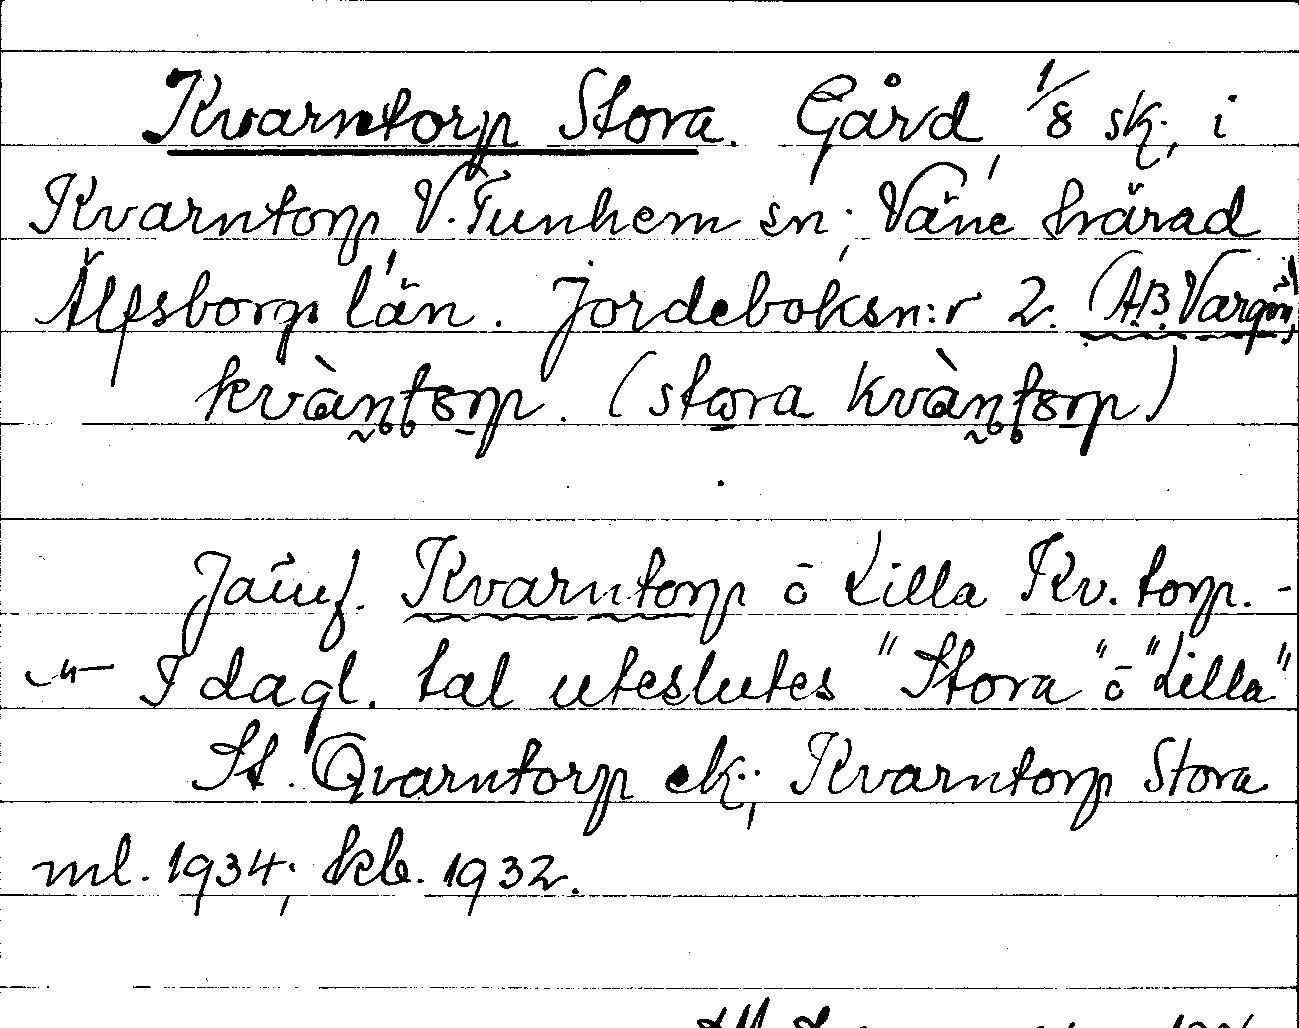 Kvarntorp Stora. Gård, 1/8 sk., i
Kvarntorp, V. Tunhem sn; Väne härad
Älfsborgs län. Jordeboksn:r 2. (A.B. Vargön)
kvàntorp. (stora kvàntorp)
Jämf. Kvarntorp o Lilla Kv. torp. -
-"- I dagl. tal uteslutes "Stora" o "Lilla"
St. Qvarntorp ek.; Kvarntorp Stora
ml. 1934; kb. 1932.